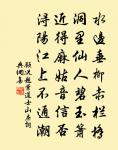 水邊垂柳赤栏橋
洞里仙人碧玉箫
近得麻姑音信否
浔陽江上不通潮
顾况题葉道士山房詩